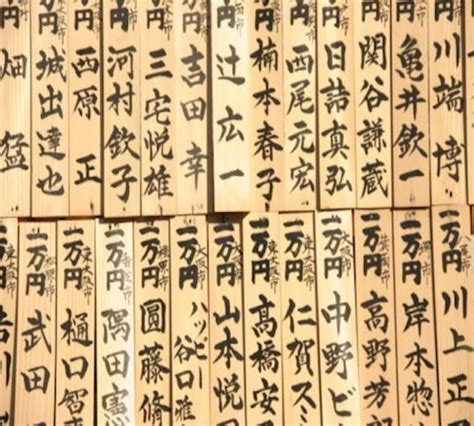 万円 川端 博
万円 亀井欽一
万円 関谷謙蔵
万円 日詰真弘
万円 西尾元宏
万円 楠本春子
万円 辻 広一
万円 吉田 幸
万円 三宅悦雄
万円 河村欽子
万円 西原 正
万円 城出達也
円 畑 猛
一万円 川上正
一万円 岸本惣
一万円 高野芳
一万円 中野ビ
一万円 仁賀スミ
一万円 東大阪市 髙橋安
一万円 大阪市 山本悦
一万円 大阪市 ハッピー谷口雅
一万円 圓藤脩
一万円 隅田憲
一万円 東大阪市 樋口智
一万円 武田
一万円 吉川